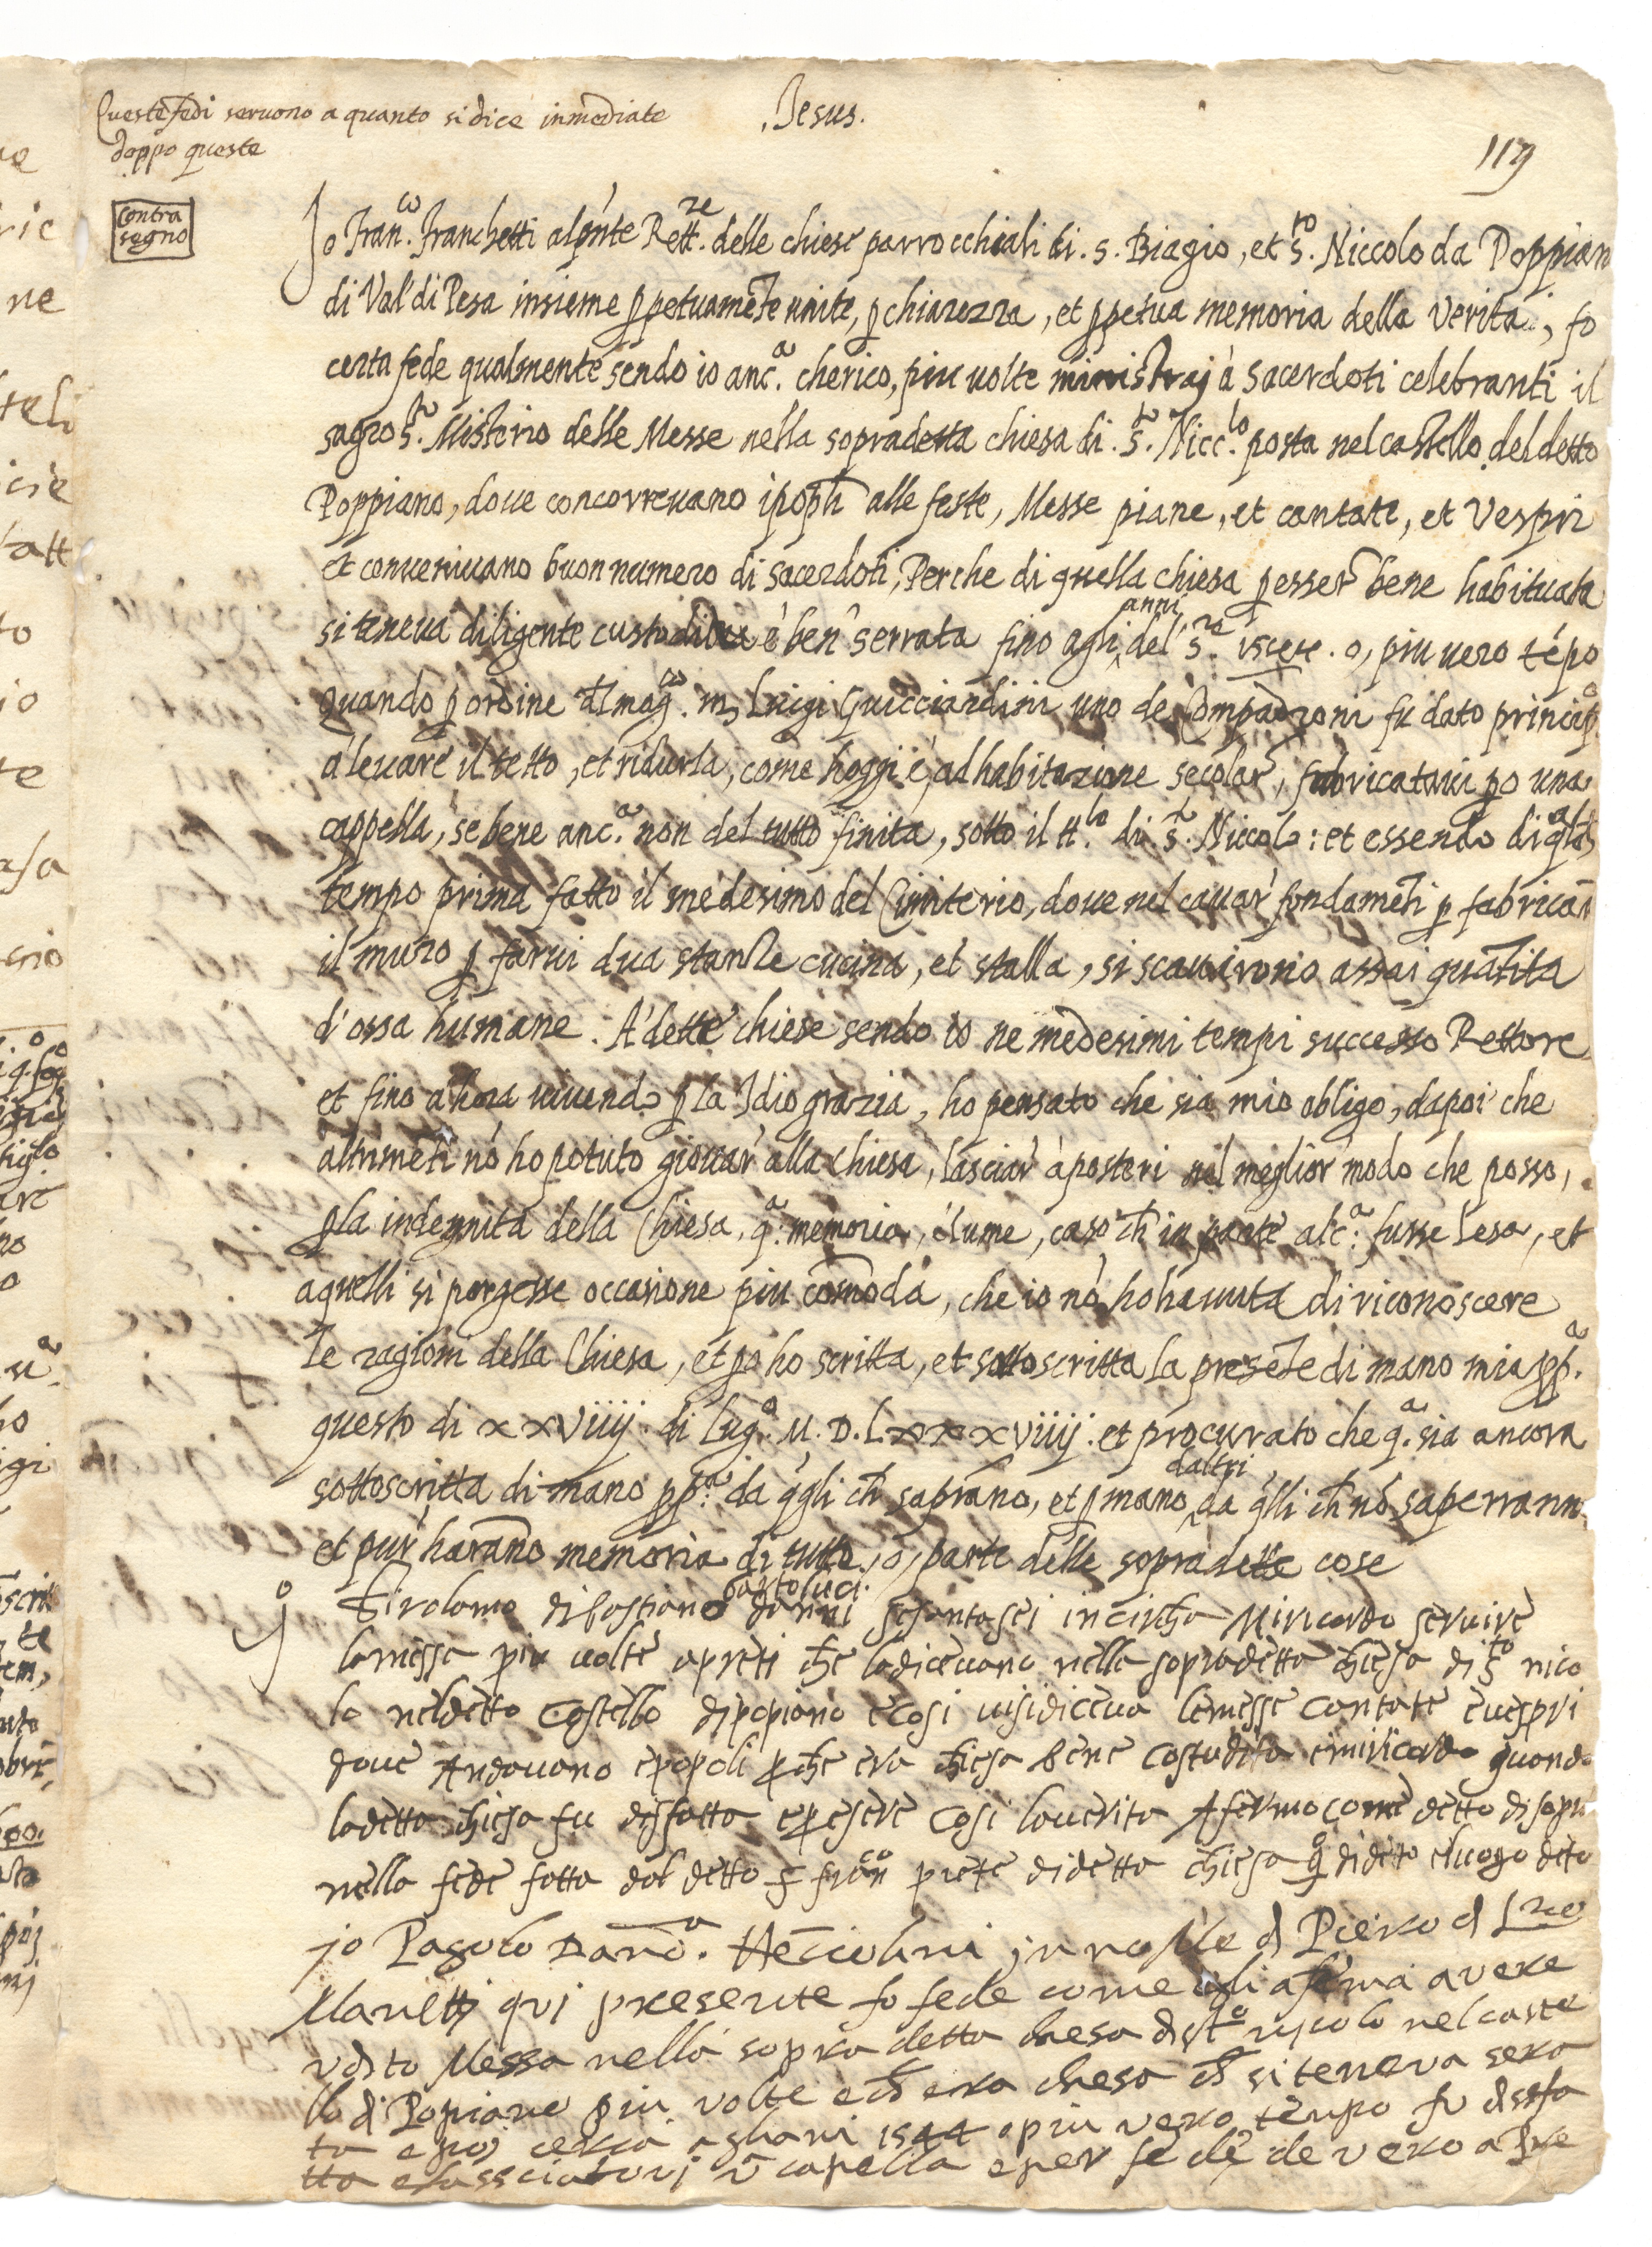 Queste fedi seruono a quanto si dice inmediate
doppo queste
.Jesus.
119
Contra
segno
Jo Fran.co Franchetti al pnte Rett.re delle chiese parrocchiali di .s. Biagio, et s.to Niccolo da Poppian
di Val di Pesa insieme ppetuamēte unite, p chiarezza, et ppetua memoria della verità, fo
certa fede qualmente sendo io anc.a cherico, piu uolte ministraj à sacerdoti celebranti il
sagro s.to Misterio delle Messe nella sopradetta chiesa di .s.to Nicc.lo posta nel castello del detto
Poppiano, doue concorreuano i poph alle feste, Messe piane, et cantate, et Vespri
et conueniuano buon numero di sacerdoti, Perche di quella chiesa p esser bene habituata
si teneua diligente è ben serrata fino agli anni del s.re o, piu uero tēpo
quando p ordine mag.co m. Luigi Guicciardini uno de Compadroni fu dato princip.o
à leuare il tetto, et ridurla, come hoggi è, ad habitazione secolar, fabricataui po una
cappella, se bene anc.a non del tutto finita, sotto il tt.lo di .s.to Niccolo: et essendo di
tempo prima fatto il medesimo del Cimiterio, doue nel cauar fondamēti p fabricar
il muro p farui dua stanze cucina, et stalla, si scauirono assai quātita
d'ossa humane. A' dette chiese sendo io ne medesimi tempi successo Rettore
et fino a hora uiuendo p la Idio grazia, ho pensato che sia mio obligo, dapoi che
altrimēti nō ho potuto giouar alla chiesa, lasciar à posteri nel meglior modo che posso,
p la indegnità della Chiesa, q.a memoria, è lume, caso ch in parte alc.a fusse lesa, et
a quelli si porgesse occasione piu comoda, che io nō ho hauuta di riconoscere
le ragioni della Chiesa, et po ho scritta, et sottoscritta la presēte di mano mia pp.a
questo di xxviiij di Lug.o M.D.Lxxxviiij. et procurato che q.a sia ancora
sottoscritta di mano pp.a da qgli ch saprāno, et p mano daltri da qlli ch nō saperrann.
et pur harāno memoria di tutto, o, parte delle sopradette cose
Jo Girolamo di bastiano bartoluci danni sesantasei incircha Miricordo seruire
la messa piu uolte apreti che ladiceuano nella sopradetta chiesa di s.to nico
lo neldetto Castello dipopiano ecosi uisidiceua lemesse cantate euespri
doue Andauano epopoli pche era chiesa bene Costudita emiricordo quando
ladetta chiesa fu disfatta epesere Cosi lauerita Afermo come detto disopra
nella fede fatta dal detto s fran.co prete didetta chiesa q.o didetto eluogo deto
jo Pagolo innome d Piero d
Manetti qui presente fo fede come egli aferma avere
vdito Messa nella sopra detta chiesa di s.to nicolo nel caste
llo di Popiano piu volte e ch era chiesa ch si teneva sera
ta e poi cerca agliani 1544 o piu vero tenpo fu disfa
tta e lassciatovi una capella e per fede de vero